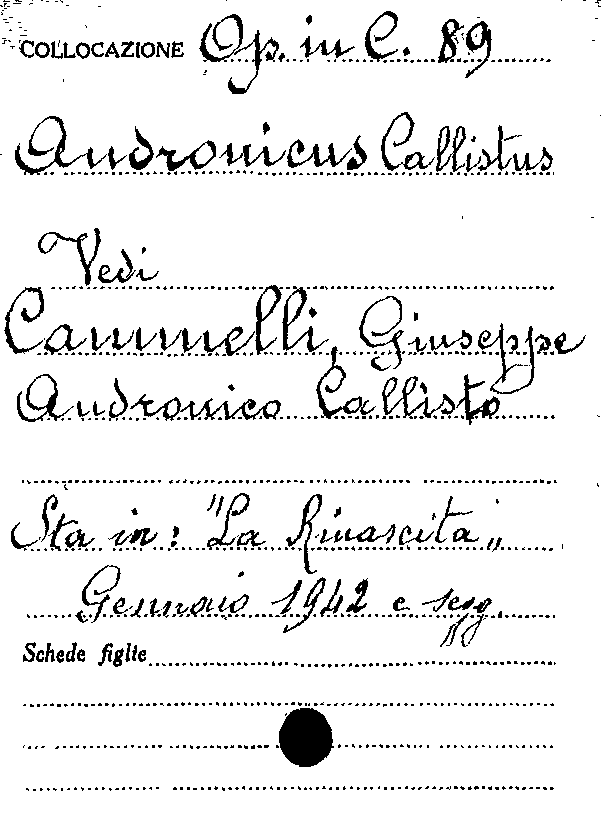 COLLOCAZIONE Op. in C. 89
Andronicus Callistus
Vedi
Cammelli, Giuseppe
Andronico Callisto
Sta in: "La Rinascita„
Gennaio 1942 e segg.
Schede figlie